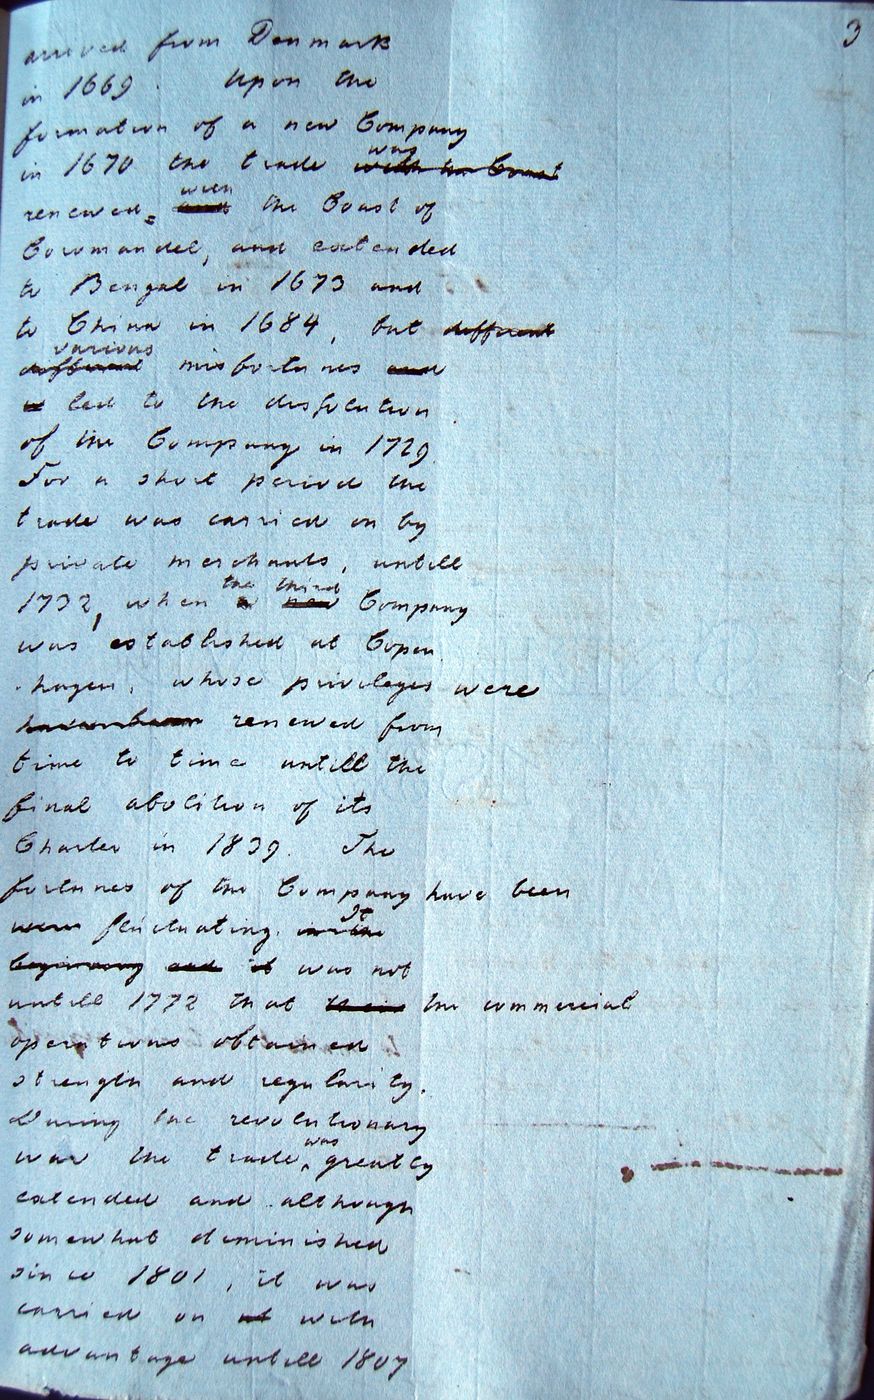 3
arrived from Denmark
in 1669. Upon the
formation of a new Company
in 1670 the trade was
renewed with the Coast of
Coromandel, and extended
to Bengal in 1673 and
to China in 1684, but different
various different misfortunes and
led to the dissolution
of the Company in 1729
For a short period the
trade was carried on by
private merchants, untill
1732, when a the new third Company
was established at Copen
hagen, whose privileges were
have been renewed from
time to time untill the
final abolition of its
Charter in 1839. The
fortunes of the Company have been
were fluctuating. in the It
beginning and it was not
untill 1772 that their the commercial
operations obtained
strength and regularity.
During the revolutionary
war the trade was greatly
extended and although
somewhat diminished
since 1801, it was
carried on at with
advantage untill 1807